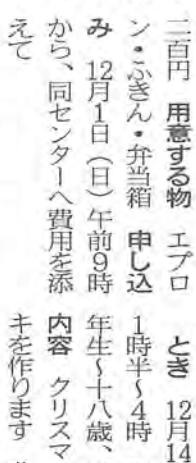 二百円　用意する物　エプロ
ン・ふきん・弁当箱　申し込
み　12月1日（日）午前9時
から、同センターへ費用を添
えて
とき　12月14
1時半〜4時
年生〜十八歳、
内容　クリスマ
キを作ります